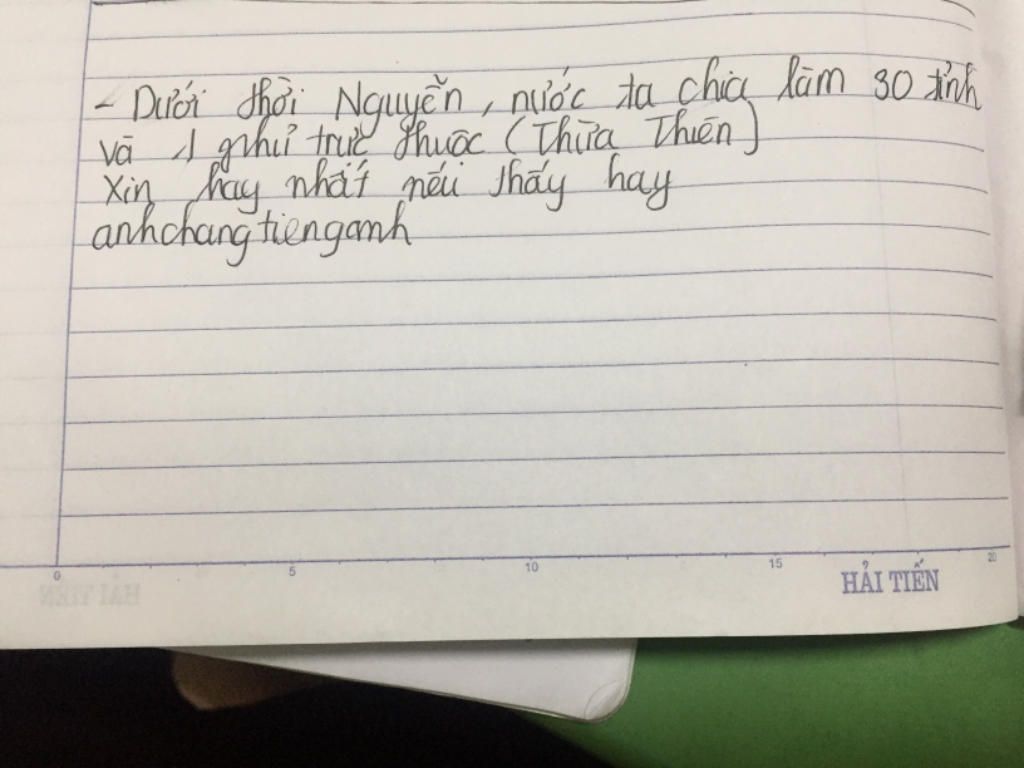 - Dưới thời Nguyễn, nước ta chia làm 30 tỉnh
và 1 phủ trực thuộc (Thừa Thiên)
Xin hay nhất nếu thấy hay
anhchangtienganh
0 5 10 15 20
HẢI TIẾN